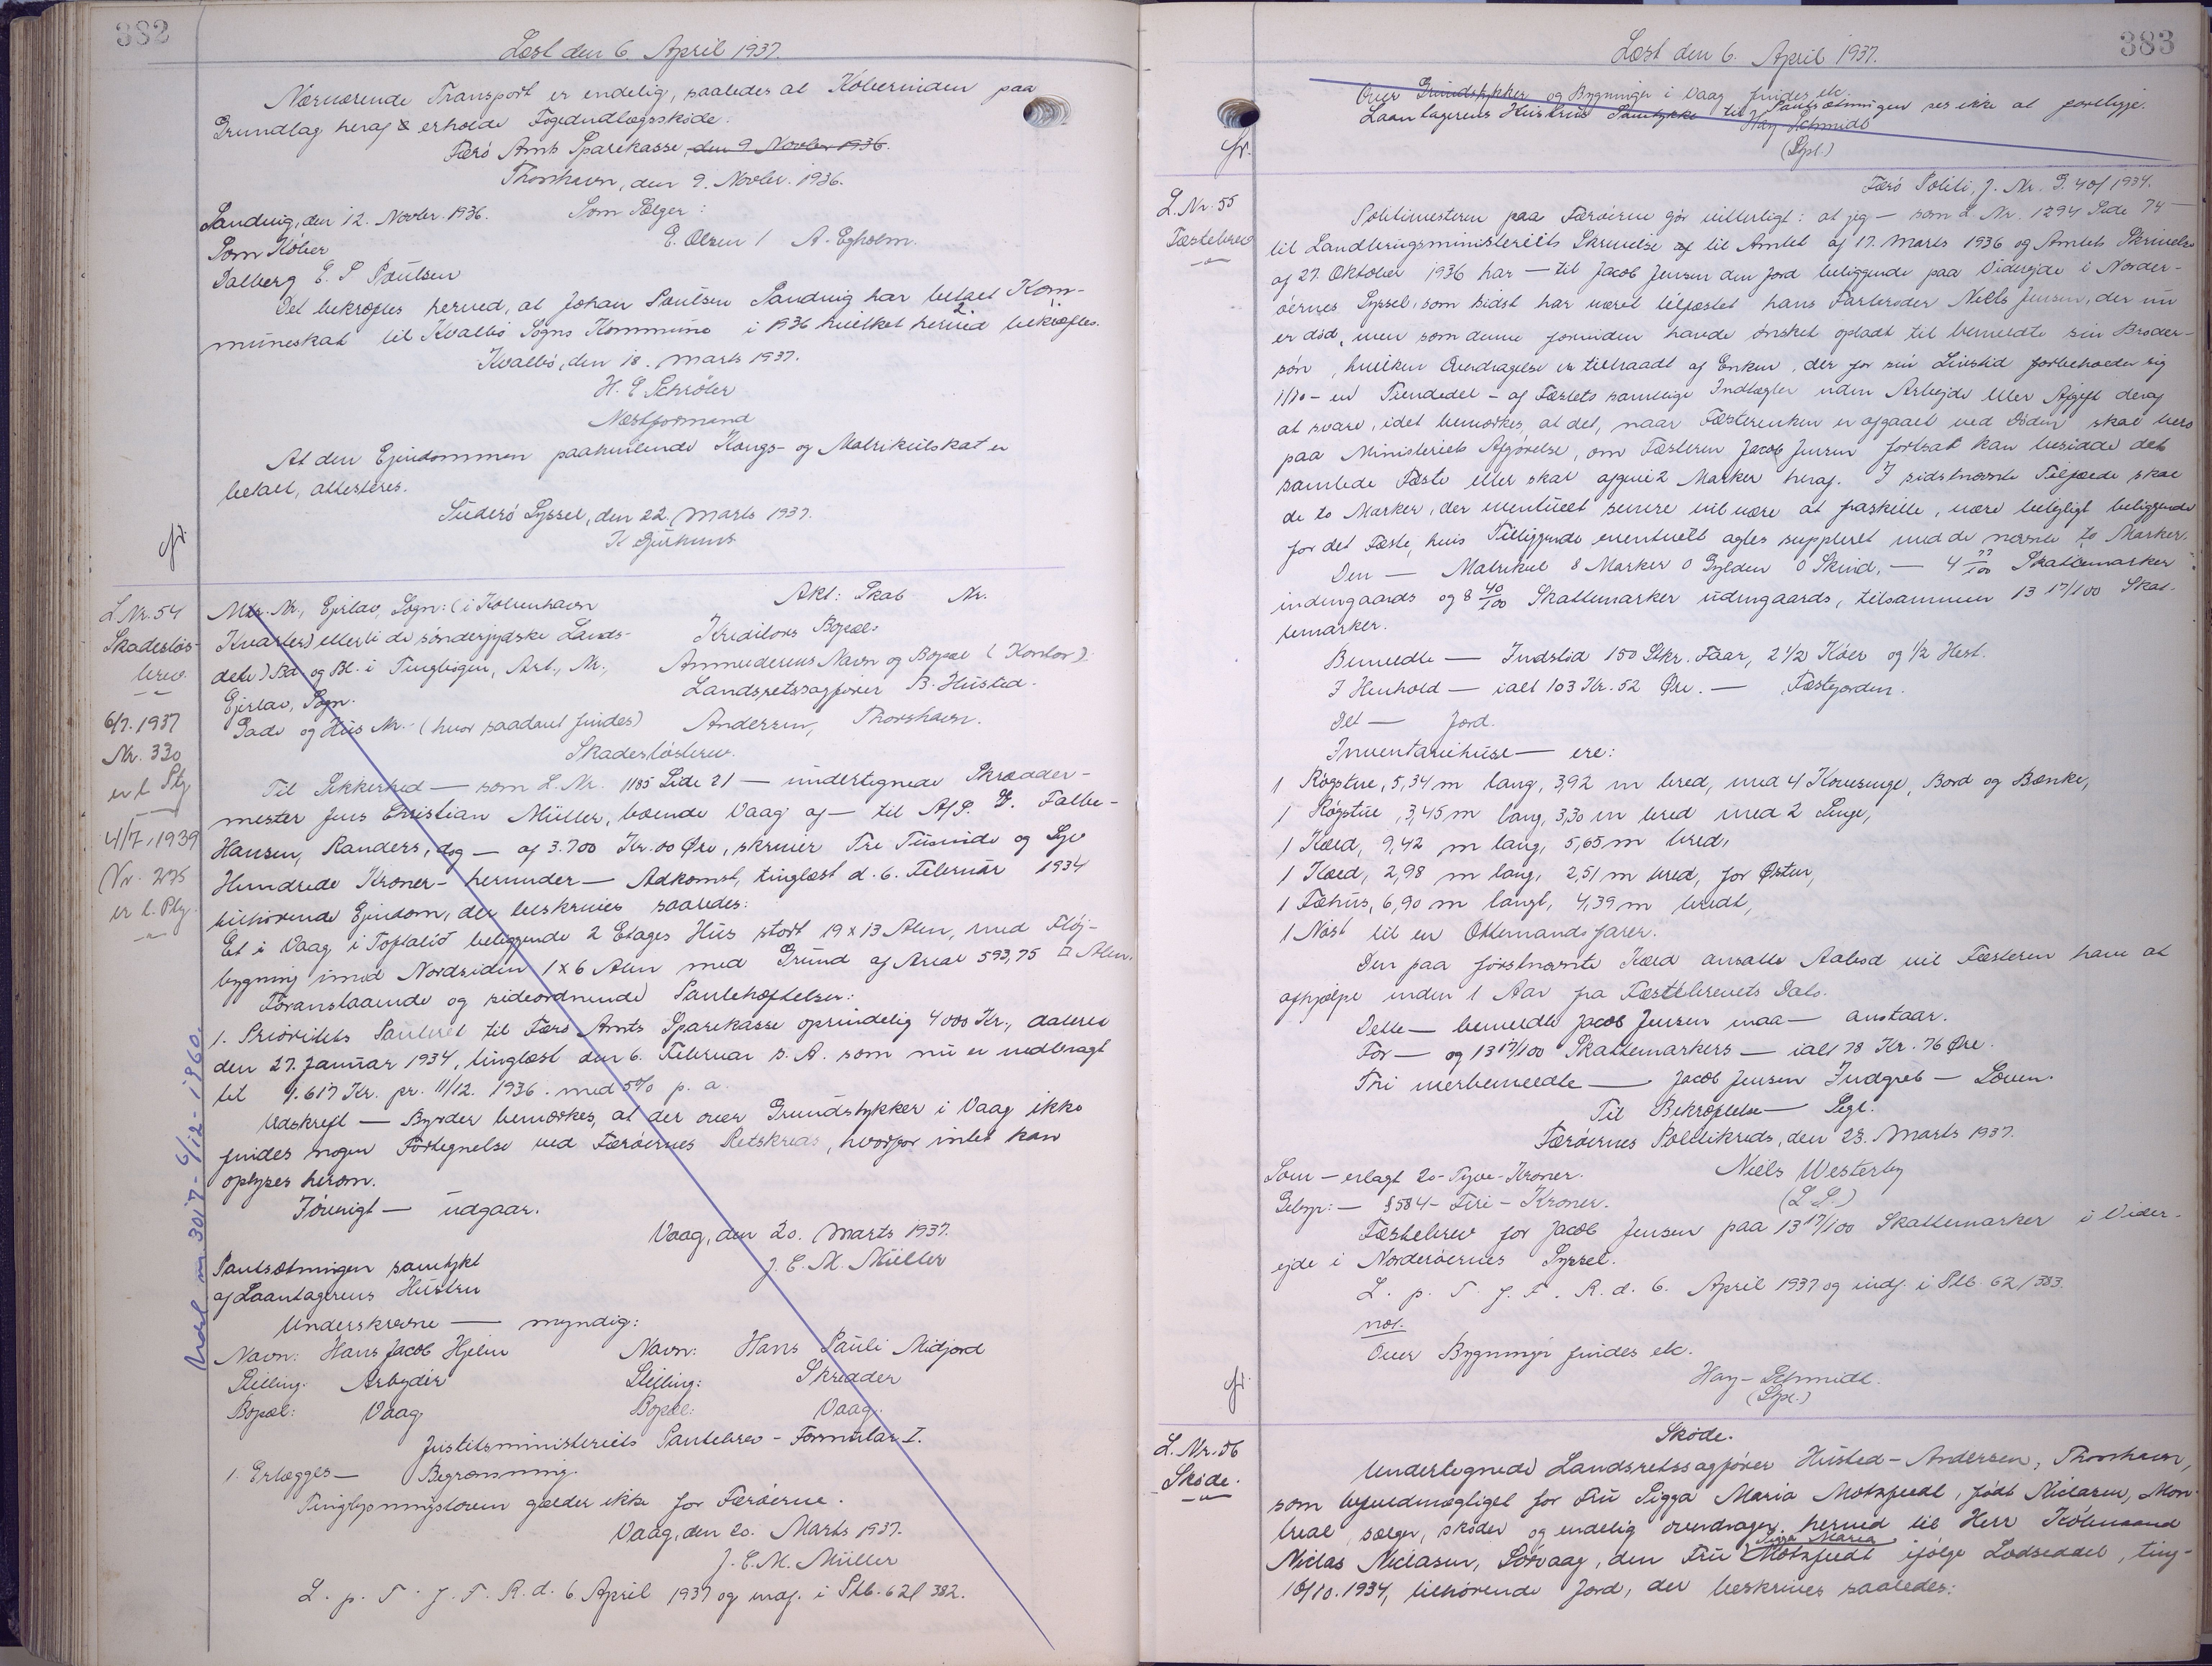 382
Læst den 6. April 1937.
Nærværende Transport er endelig, saaledes at Køberinden paa
Grundlag heraf erholde Fogedudlægsskøde.
Færø Amts Sparekasse, den 9. Novbr 1936.
Thorshavn, den 9. Novbr. 1936.
Sandvig, den 12. Novbr. 1936. Som Sælger:
Som Køber E. Olsen / A. Egholm.
Dalberg E. S. Poulsen
Det bekræftes herved, at Johan Poulsen Sandvig har betalt Kom-
muneskat til Kvalbø Sogns Kommune i 1936 hvilket herved bekræftes.
Kvalbø, den 18. Marts 1937.
H. E. Schrøter
Næstformand
At den Ejendommen paahvilende Kongs- og Matrikulskat er
betalt, attesteres.
Suderø Syssel, den 22. Marts 1937.
L. Nr. 54
Skadesløs-
brev.
6/7. 1937
Nr. 330
er l. Ptg.
4/7. 1939
Nr. 275
er l. Ptg.
Matr. Nr., Ejerlav, Sogn: (i København Akt: Skab Nr.
Kvarter) eller (i de sønderjydske Lands- Kreditors Bopæl:
dele) Bd. og Bl. i Tingbogen, Art., Nr., Anmelderens Navn og Bopæl (Kontor).
Ejerlav, Sogn. Landsretssagfører B. Husted-
Gade og Hus Nr. (hvor saadant findes) Andersen, Thorshavn.
Skadesløsbrev.
Til Sikkerhed — som L. Nr. 1185 Side 21 — undertegnede Skrædder-
mester Jens Christian Müller, boende Vaag af — til A/S. Falbe-
Hansen, Randers, dog — af 3.700 Kr. 00 Øre, skriver Tre Tusinde og Syv
Hundrede Kroner — herunder — Adkomst, tinglæst d. 6. Februar 1934
tilhørende Ejendom, der beskrives saaledes:
Et i Vaag i Toftalið beliggende 2 Etages Hus stort 19 x 13 Alen, med Fløj-
bygning imod Nordsiden 1 x 6 Alen med Grund af Areal 593,75 □ Alen.
Foranstaaende og sideordnende Pantehæftelser:
1. Prioritets Pantebrev til Færø Amts Sparekasse oprindelig 4000 Kr., dateret
den 27. Januar 1934, tinglæst den 6. Februar s. A. som nu er nedbragt
til 1.617 Kr. pr. 11/12. 1936. med 5% p. a.
Udskrift — Byrder bemærkes, at der over Grundstykker i Vaag ikke
findes nogen Fortegnelse ved Færøernes Retskreds, hvorfor intet kan
oplyses herom.
Iøvrigt — udgaar.
Vaag, den 20. Marts 1937.
Pantsætningen samtykt J. C. M. Müller
af Laantagerens Hustru
Underskrevne — myndig:
Navn: Hans Jacob Hjelm Navn: Hans Pauli Midjord
Stilling: Arbejder Stilling: Skrædder
Bopæl: Vaag Bopæl: Vaag.
Justitsministeriets Pantebrev - Formular I.
1. Erlægges — Begrænsning.
Tinglysningsloven gælder ikke for Færøerne.
Vaag, den 20. Marts 1937.
J. C. M. Müller
L. p. T. f. F. R. d. 6 April 1937 og indf. i Ptb. 62/382.
6/12-1960.
383
Læst den 6. April 1937.
Over Grundstykker og Bygninger i Vaag findes etc.
Laantagerens Hustrus Samtykke til Pantsætningen ses ikke at foreligge.
Hay-Schmidt
(Spl.)
L. Nr. 55
Fæstebrev
Færø Politi, J. Nr. G. 40/1934.
Politimesteren paa Færøerne gør vitterligt: at jeg — som L. Nr. 1294 Side 74 —
til Landbrugsministeriets Skrivelse til Amtet af 17. Marts 1936 og Amtets Skrivelse
af 27. Oktober 1936 har — til Jacob Jensen den Jord beliggende paa Viderejde i Norder-
øernes Syssel, som sidst har været tilfæstet hans Farbroder Niels Jensen, der nu
er død, men som denne forinden havde ønsket opladt til bemeldte sin Broder-
søn, hvilken Overdragelse er tiltraadt af Enken, der for sin Livstid forbeholder sig
1/10 - en Tiendedel - af Fæstets samtlige Indtægter uden Arbejde eller Afgift deraf
at svare, idet bemærkes, at det, naar Fæsterenken er afgaaet ved Døden skal bero
paa Ministeriets Afgørelse, om Fæsteren Jacob Jensen fortsat kan besidde det
samlede Fæste eller skal afgive 2 Marker heraf. I sidstnævnte Tilfælde skal
de to Marker, der eventuelt senere vil være at fraskille, være belejligt beliggende
for det Fæste, hvis Tilliggende eventuelt agtes suppleret med de nævnte to Marker.
Den — Matrikul 8 Marker 0 Gylden 0 Skind, — 4 77/100 Skattemarker
indengaards og 8 40/100 Skattemarker udengaards, tilsammen 13 17/100 Skat-
temarker.
Bemeldte — Indstød 150 Stkr. Faar, 2 1/2 Køer og 1/2 Hest.
I Henhold — ialt 103 Kr. 52 Øre. — Fæstejorden.
Det — Jord.
Inventariehuse — ere:
1 Røgstue, 5,34 m lang, 3,92 m bred, med 4 Kovesenge, Bord og Bænke,
1 Røgstue, 3,45 m lang, 3,30 m bred med 2 Senge,
1 Hæd, 9,42 m lang, 5,65 m bred,
1 Hæd, 2,98 m lang, 2,51 m bred, for Østen,
1 Fæhus, 6,90 m langt, 4,39 m bredt,
1 Nøst til en Ottemandsfarer.
Den paa førstnævnte ansatte Aabod vil Fæsteren have at
afhjælpe inden 1 Aar fra Fæstebrevets Dato.
Dette — bemeldte Jacob Jensen maa — anstaar.
For — og 13 17/100 Skattemarkers — ialt 78 Kr. 76 Øre.
Fri merbemeldte — Jacob Jensen Indgreb — Loven.
Til Bekræftelse — Segl.
Færøernes Politikreds, den 23. Marts 1937.
Som — erlagt 20 - Tyve - Kroner. Niels Westerby
Gebyr: — § 58 4 - Fire - Kroner. (L. S.)
Fæstebrev for Jacob Jensen paa 13 17/100 Skattemarker i Vider-
ejde i Norderøernes Syssel.
L. p. T. f. F. R. d. 6. April 1937 og indf. i Ptb 62/383.
not.
Over Bygninger findes etc.
Hay-Schmidt.
(Spl.)
L. Nr. 56
Skøde.
Skøde.
Undertegnede Landsretssagfører Husted-Andersen, Thorshavn,
som befuldmægtiget for Fru Sigga Maria Motzfeldt, født Niclasen, Mon-
treal, sælger, skøder og endelig overdrager herved til Herr Købmand
Niclas Niclasen, Sørvaag, den Fru Sigga Maria Motzfeldt ifølge Lodseddel, ting-
16/10. 1934, tilhørende Jord, der beskrives saaledes: